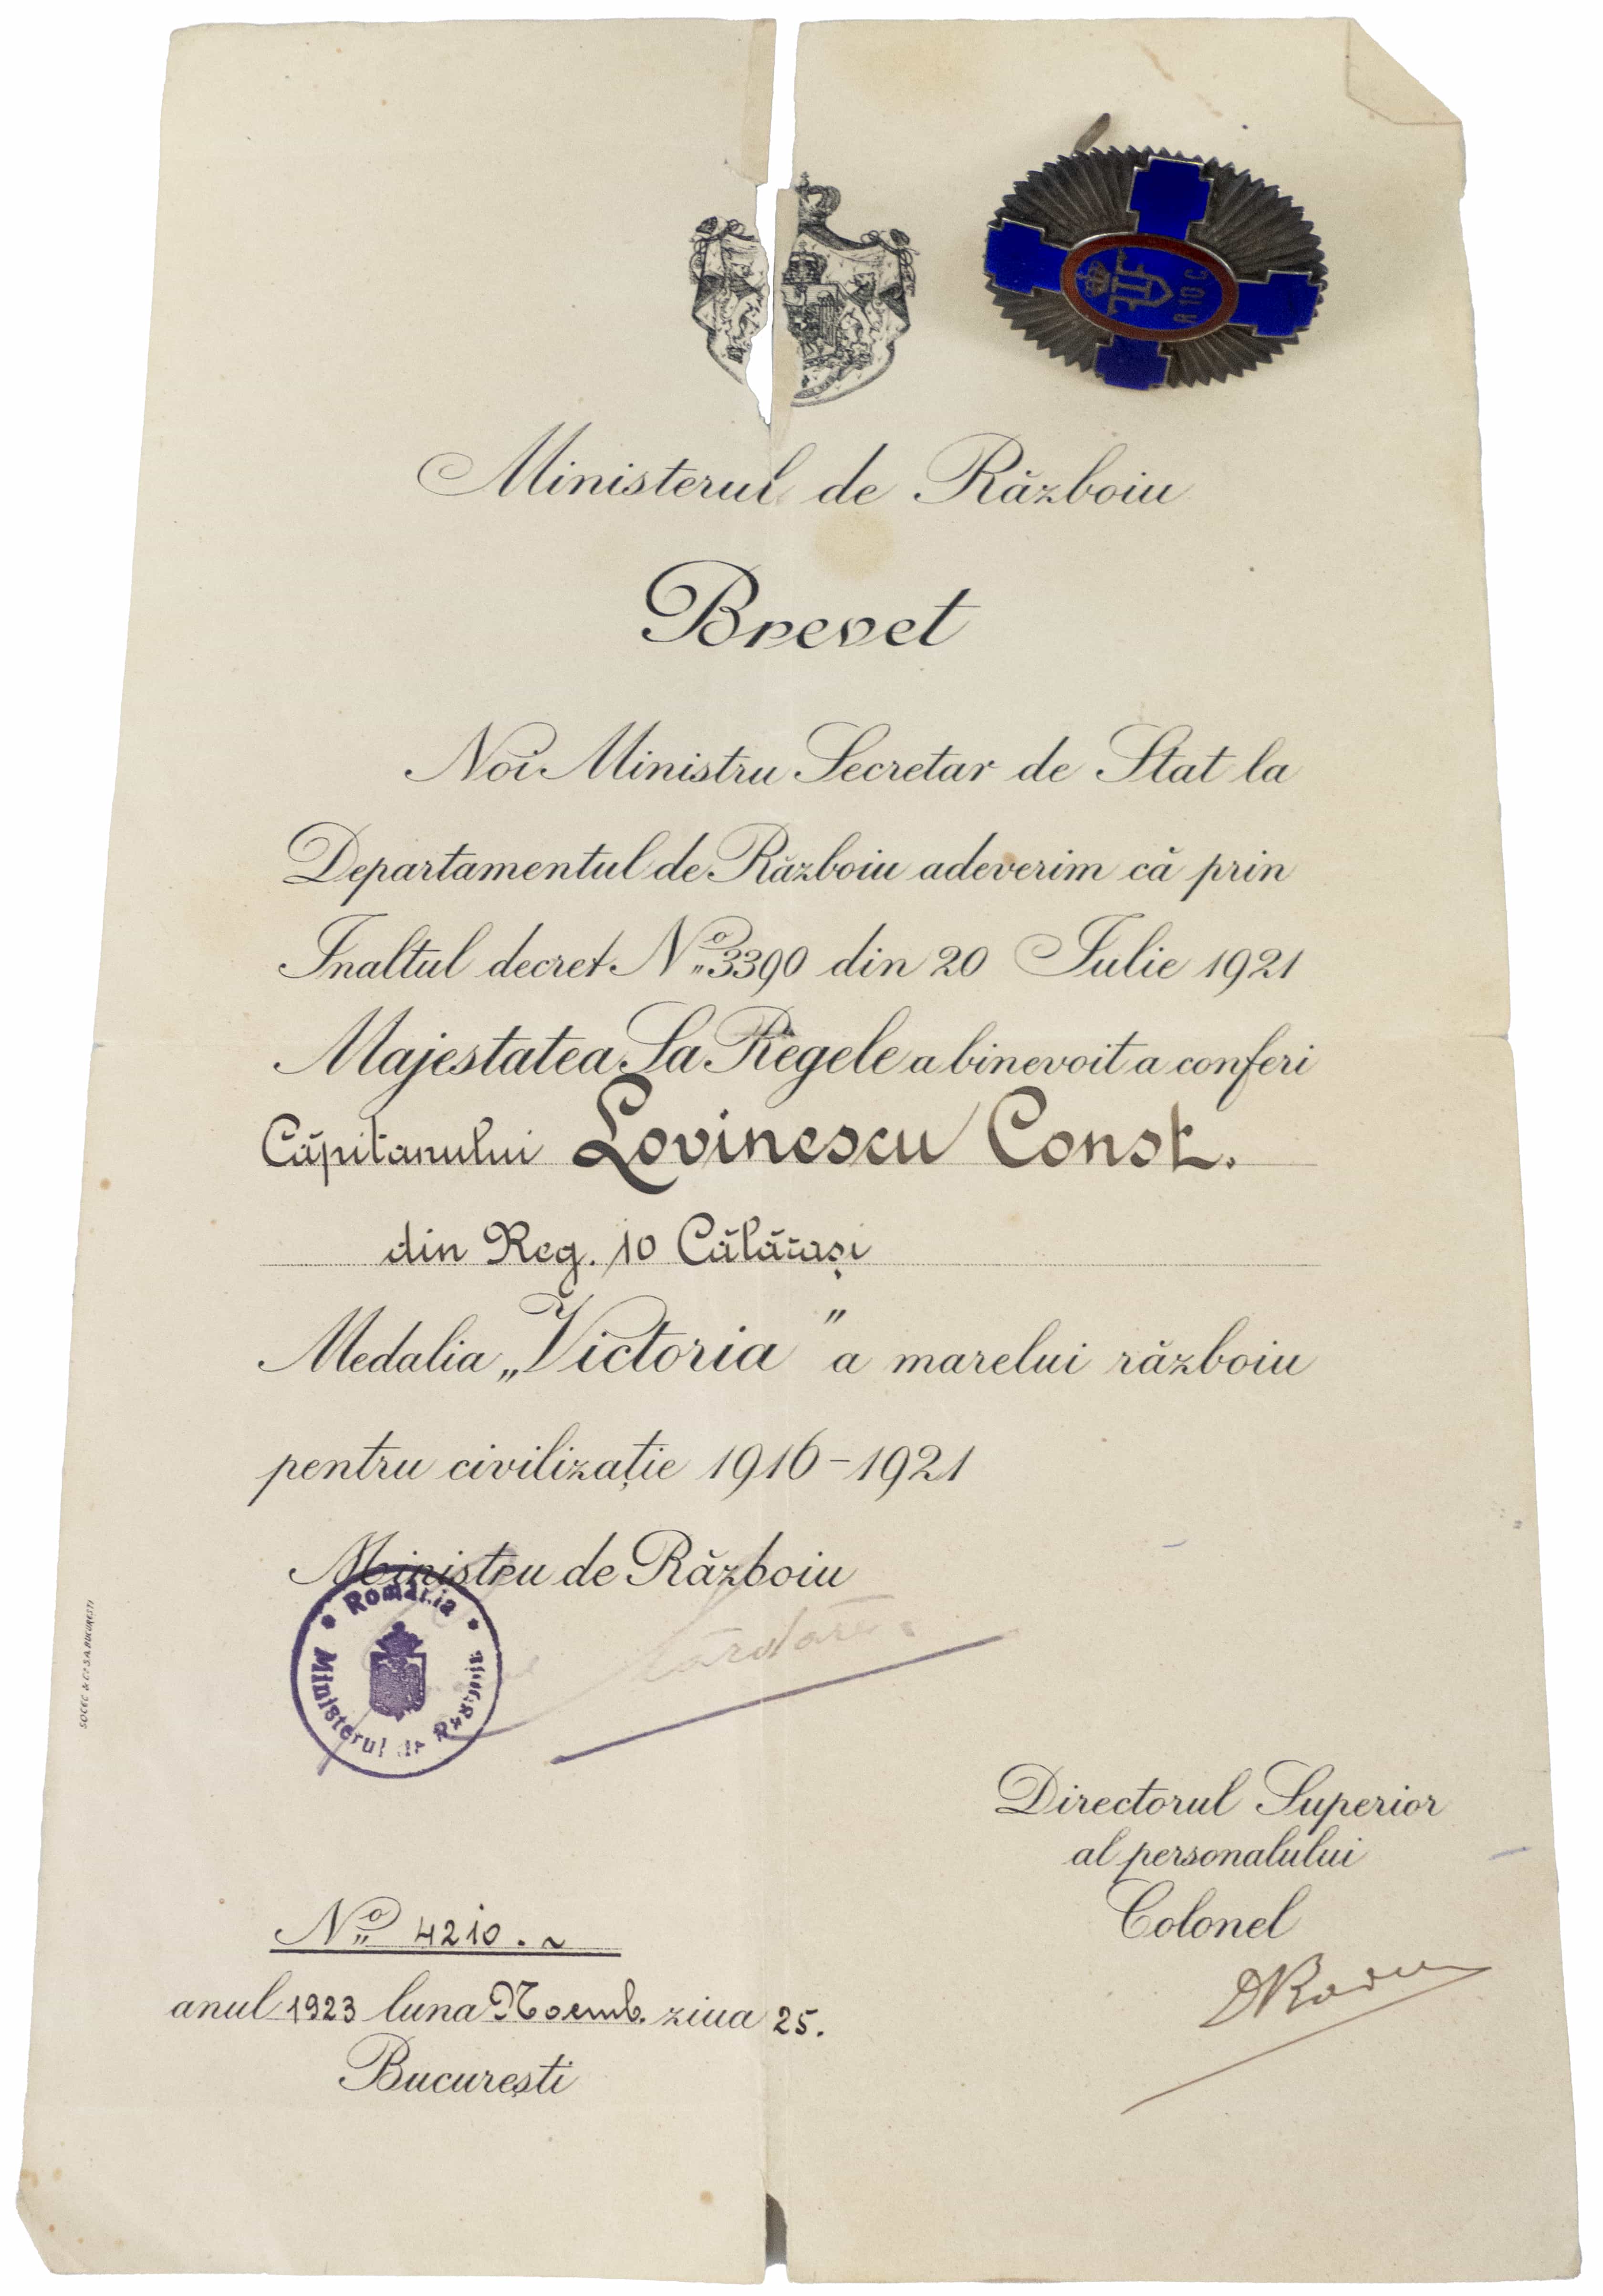 R 10 C
Ministerul de Războiu
Brevet
Noi Ministru Secretar de Stat la
Departamentul de Războiu adeverim că prin
Inaltul decret No 3390 din 20 Iulie 1921
Majestatea Sa Regele a binevoit a conferi
Căpitanului Lovinescu Const.
din Reg. 10 Călărași
Medalia „Victoria" a marelui războiu
pentru civilizație 1916-1921
Ministru de Războiu
România
Ministerul de Războiu
SOCEC & Co S.A. BUCUREȘTI
Directorul Superior
al personalului
Colonel
No 4210.
anul 1923 luna Noemb. ziua 25.
București